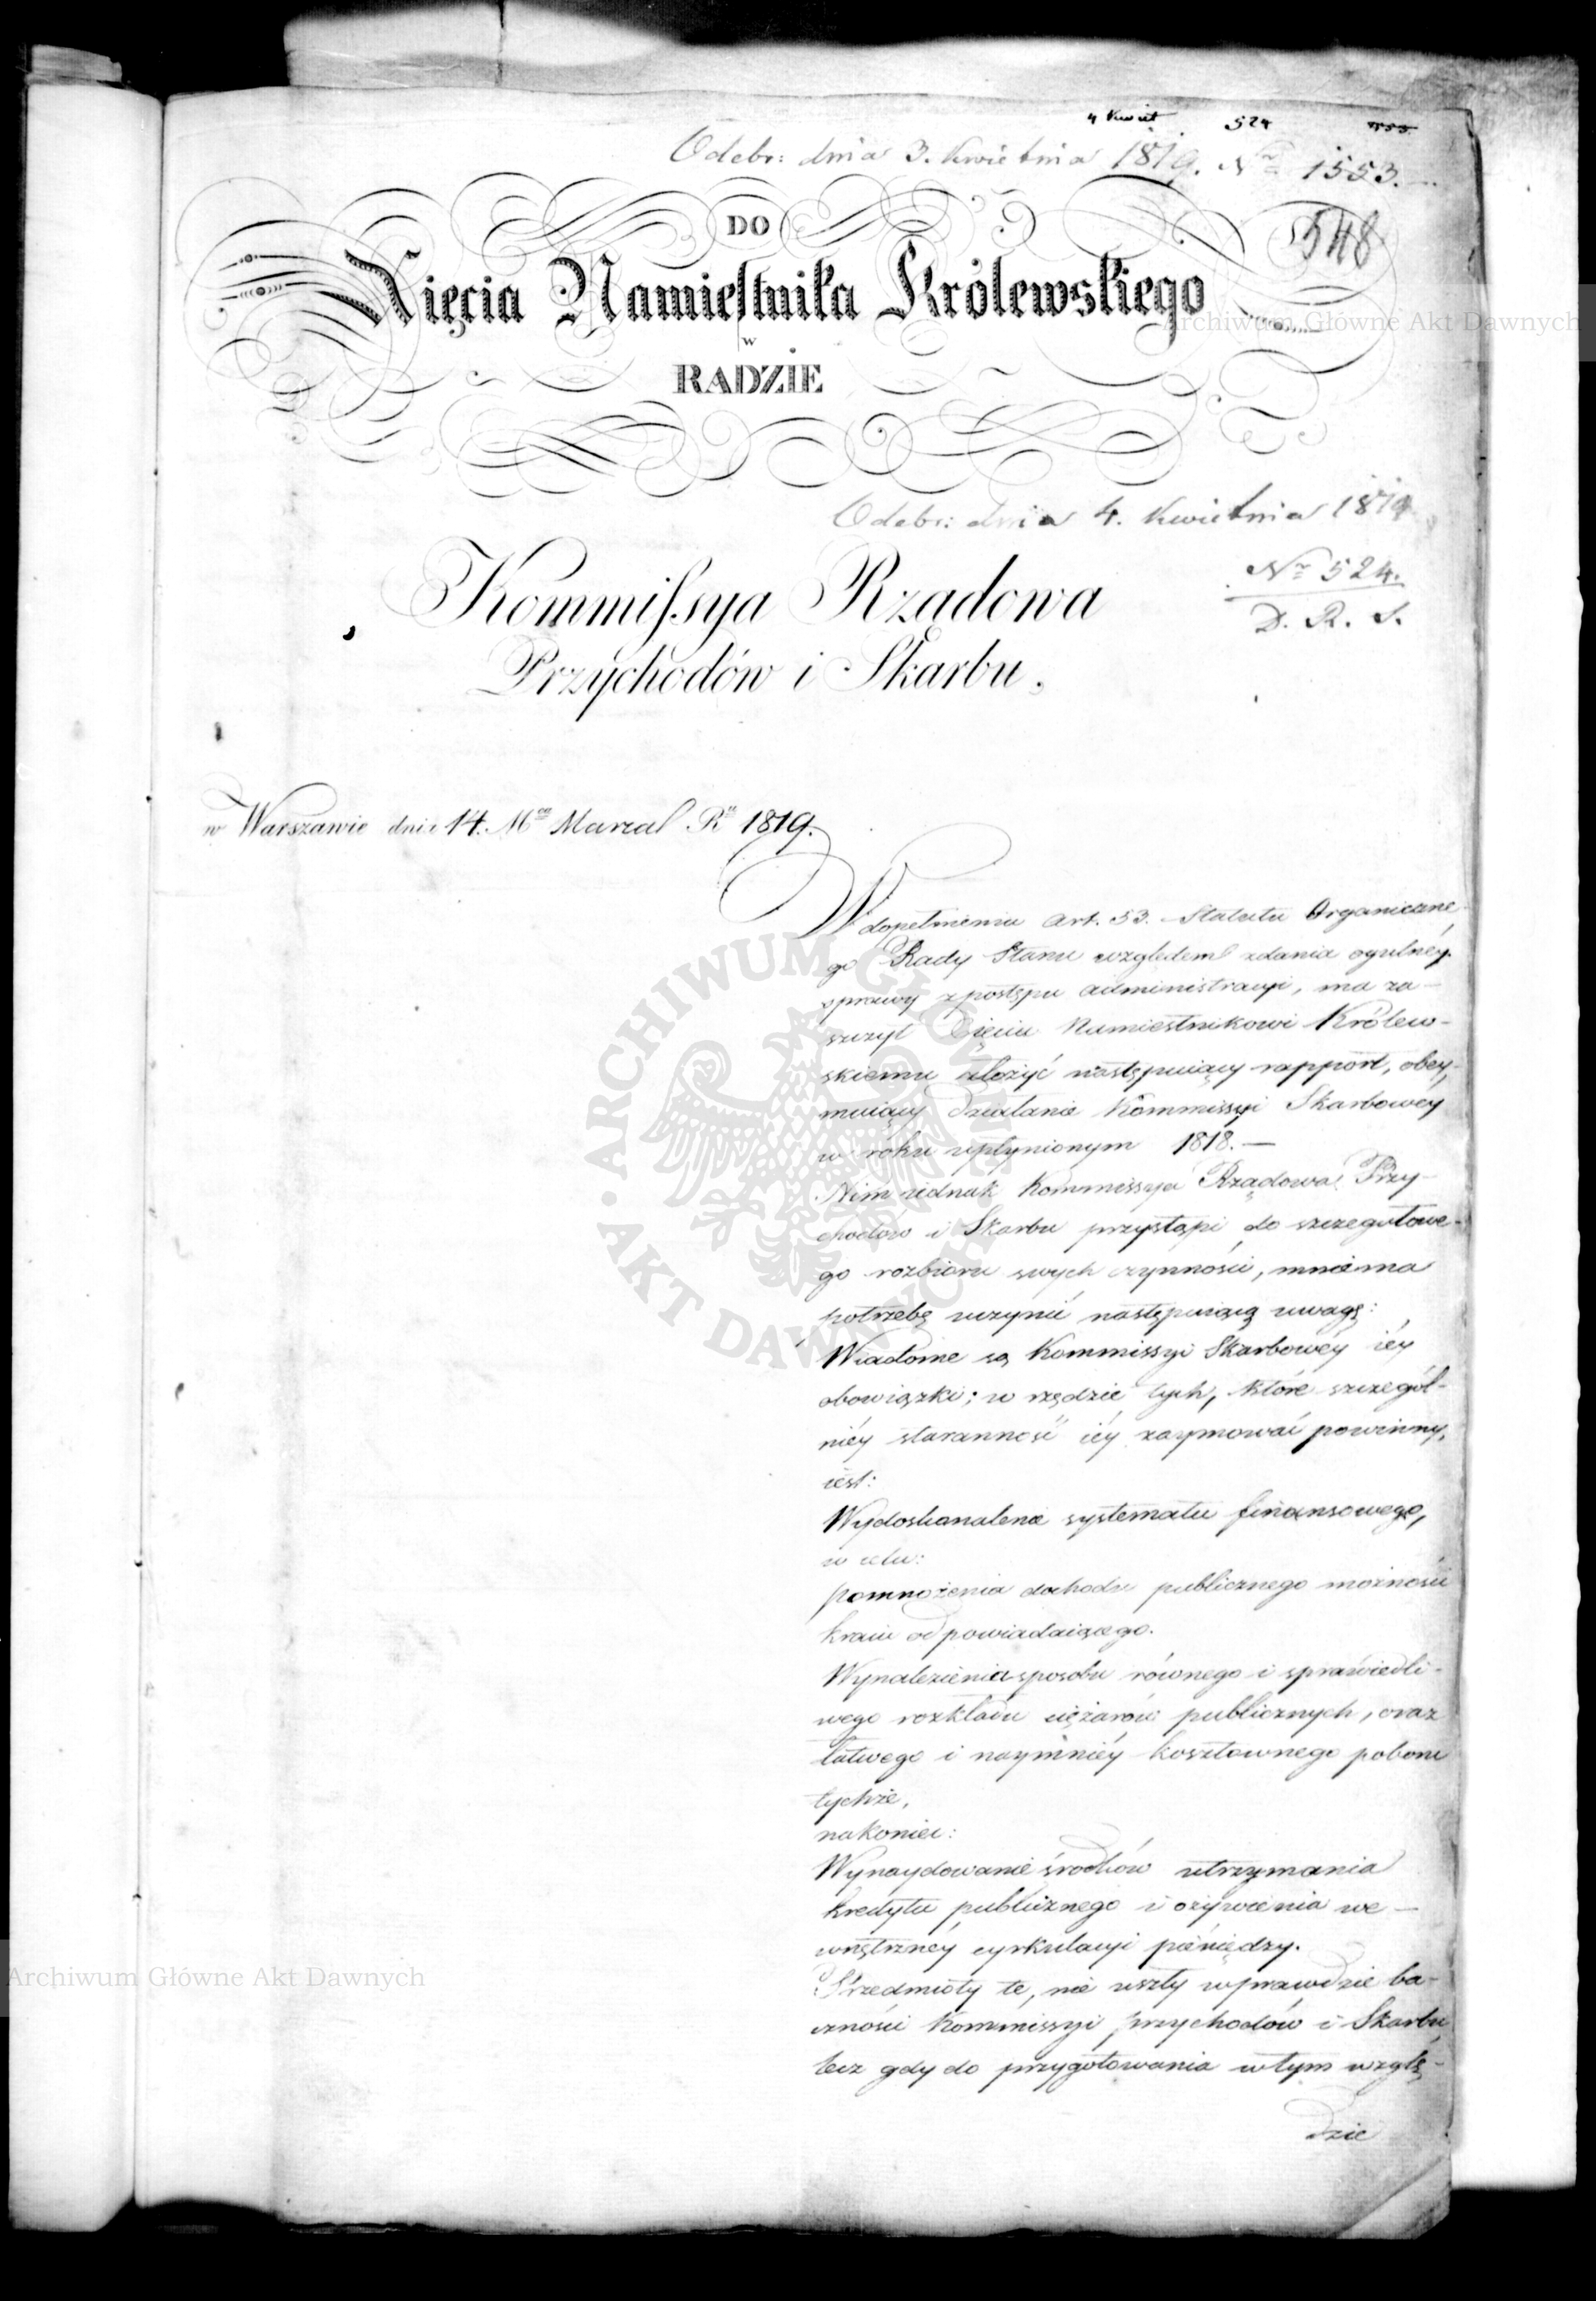 4 Kwiet 524
Odebr: dnia 3. Kwietnia 1819. Nr 1553.
548
DO
Xięcia Namiestnika Królewskiego
w
RADZIE
Odebr: dnia 4. Kwietnia 1819
Nr 524.
D. R. S.
Kommissya Rządowa
Przychodów i Skarbu,
w Warszawie dnia 14. Mca Marca Ru 1819.
W dopełnieniu Art. 53. Statutu Organiczne-
go Rady Stanu względem zdania ogulnéy
sprawy z postępu administracyi, ma za-
szczyt Xięciu Namiestnikowi Królew-
skiemu złożyć następuiący rapport, obey-
muiący działania Kommissyi Skarbowey
w roku upłynionym 1818. —
Nim iednak Kommissya Rządowa Przy-
chodów i Skarbu przystąpi do szczegułowe-
go rozbioru swych czynności, mniema
potrzebę uczynić następuiącą uwagę:
Wiadome są Kommissyi Skarbowéy iéy
obowiązki; w rzędzie tych, które szczegól-
niéy staranność iéy zaymować powinny,
iest:
Wydoskonalenie systematu finansowego,
w celu:
pomnożenia dochodu publicznego możności
kraiu odpowiadaiącego.
Wynalezienia sposobu równego i sprawiedli-
wego rozkładu ciężarów publicznych, oraz
łatwego i naymniéy kosztownego poboru
tychże,
nakoniec:
Wynaydowanie środków utrzymania
kredytu publicznego i ożywienia we-
wnętrznéy cyrkulacyi pieniędzy.
Przedmioty te, nie uszły wprawdzie ba-
czności Kommissyi Przychodów i Skarbu
lecz gdy do przygotowania w tym wzglę-
dzie
Archiwum Główne Akt Dawnych
Archiwum Główne Akt Dawnych
ARCHIWUM GŁÓWNE • AKT DAWNYCH •